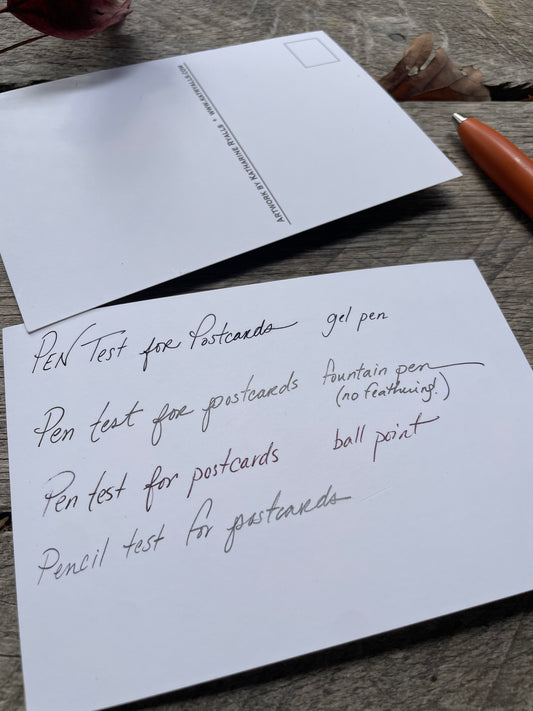 ARTWORK BY KATHARINE RYALLS • WWW.KATRYALLS.COM
PEN Test for Postcards gel pen
Pen test for postcards fountain pen
(no feathering!)
Pen test for postcards ball point
Pencil test for postcards